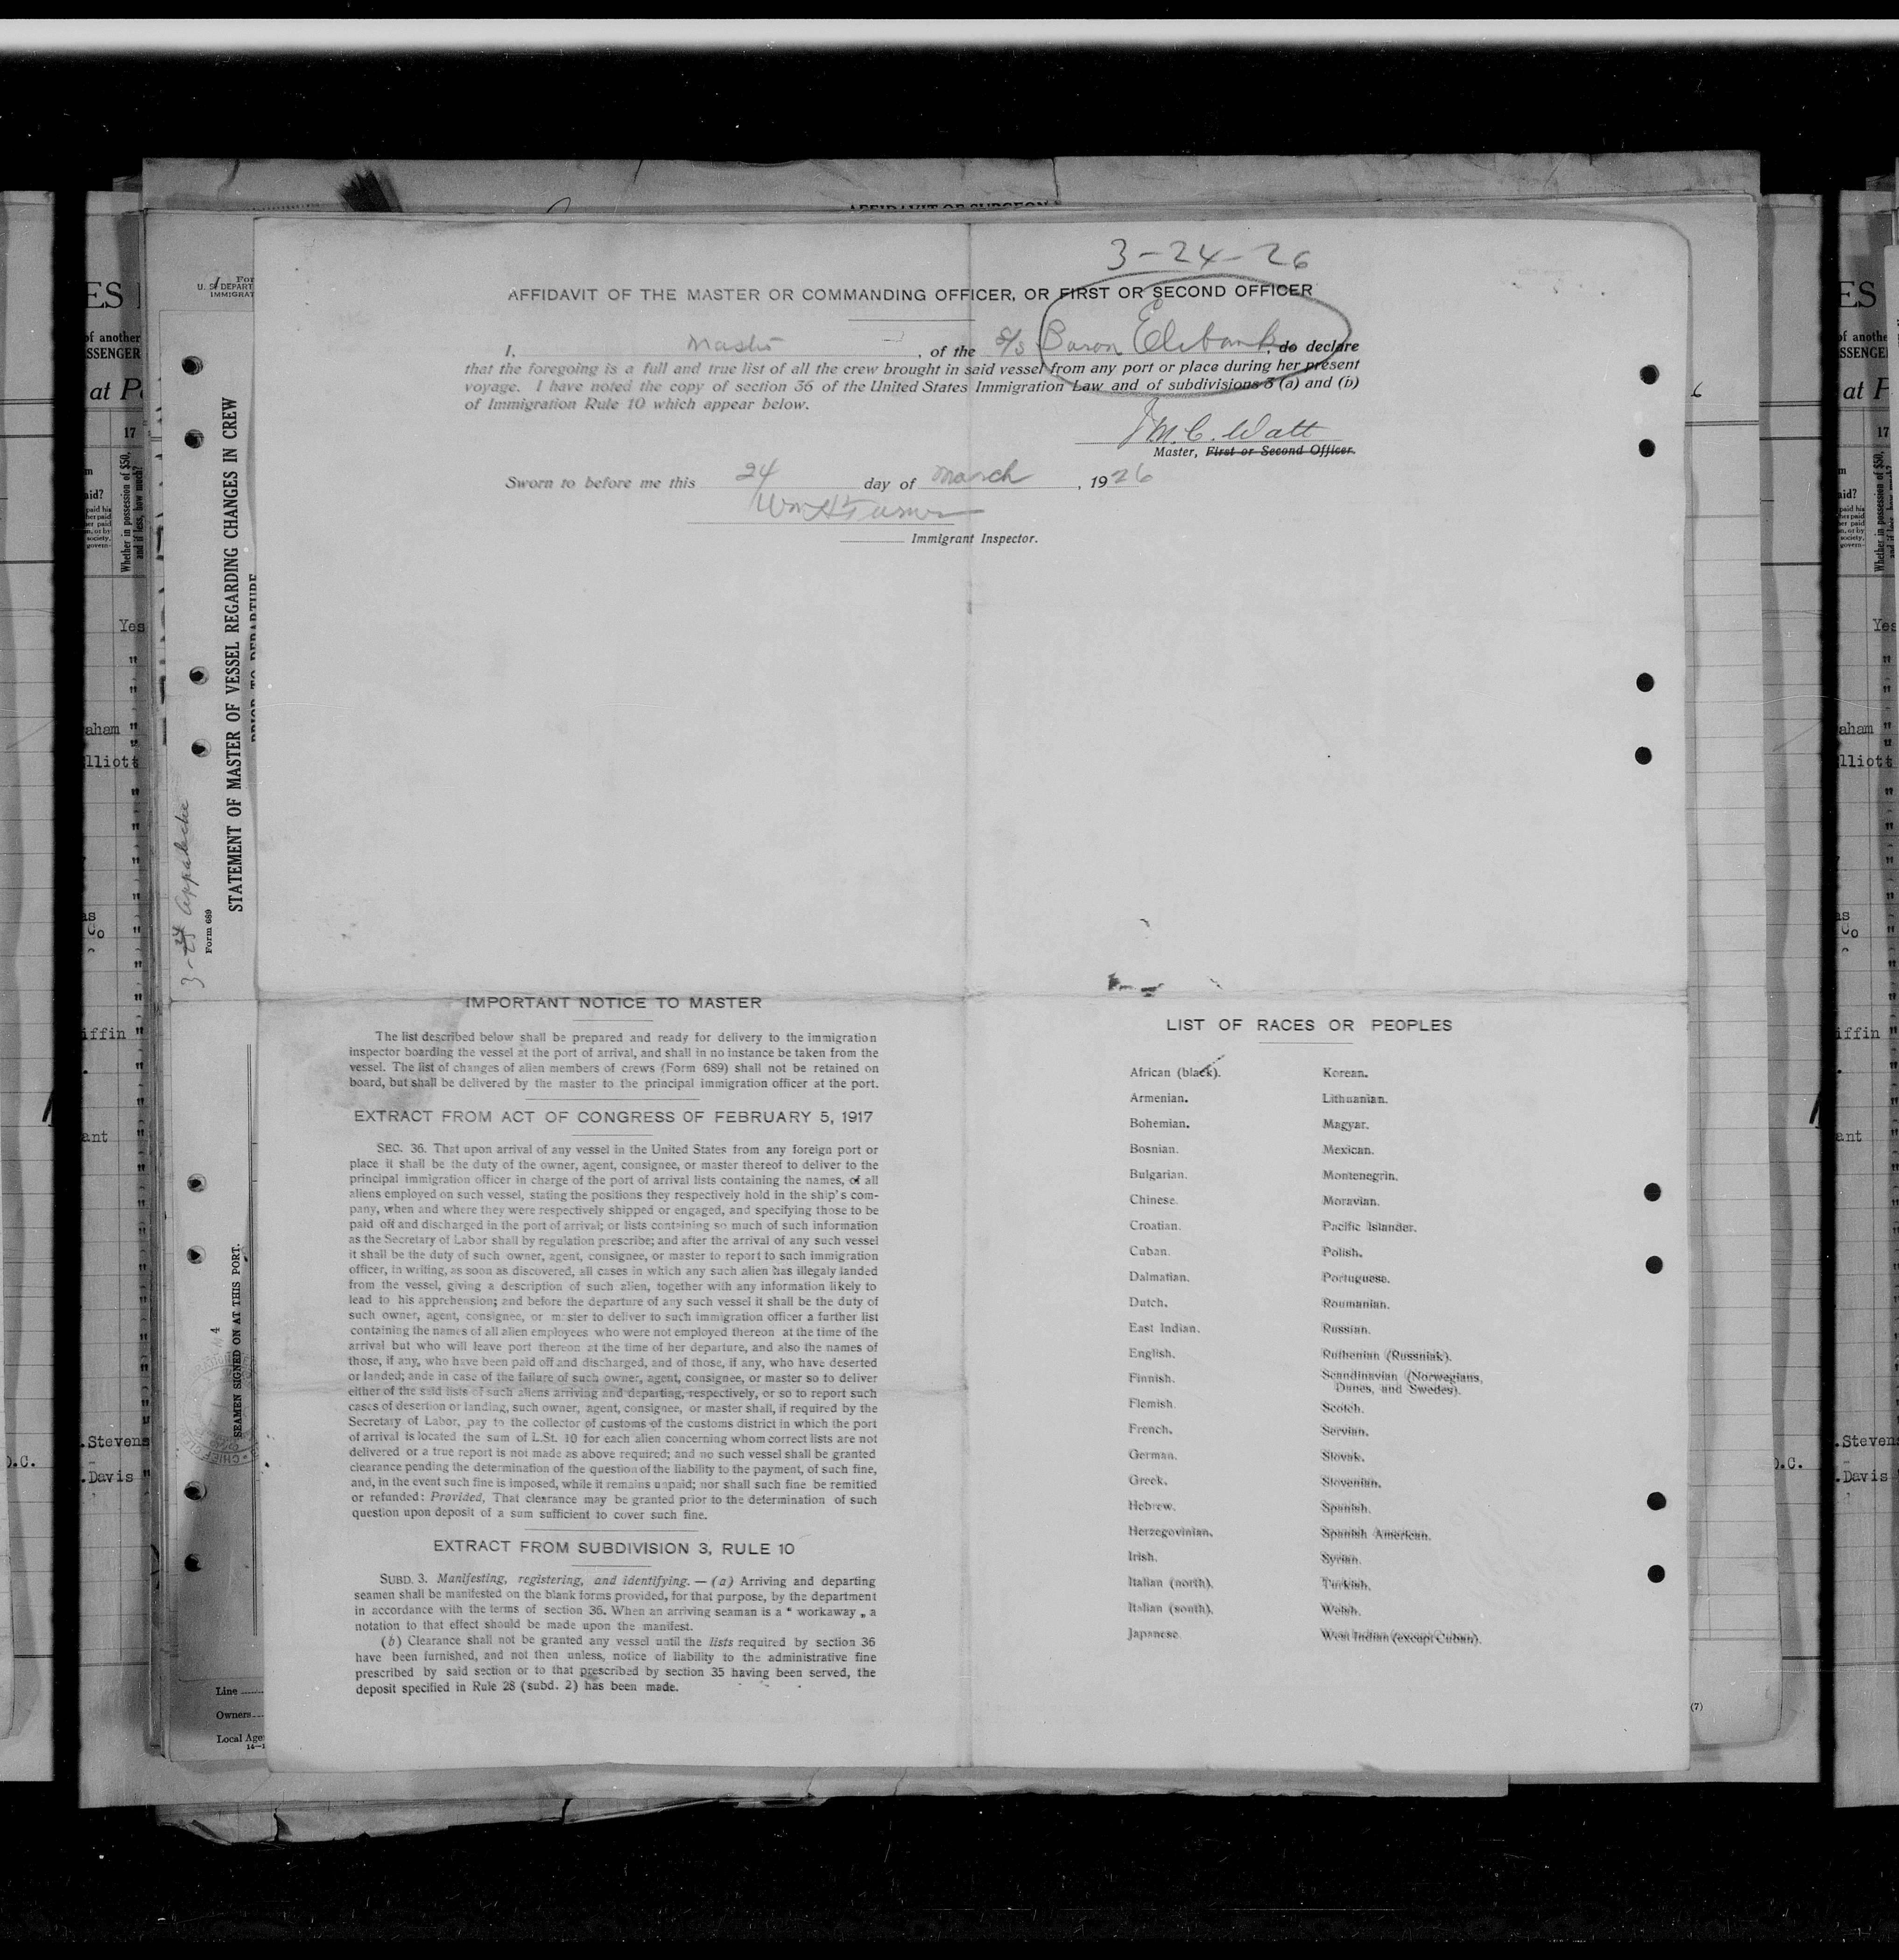 3-24-26
AFFIDAVIT OF THE MASTER OR COMMANDING OFFICER, OR FIRST OR SECOND OFFICER
I, Master, of the S/S Baron Elibank, do declare
that the foregoing is a full and true list of all the crew brought in said vessel from any port or place during her present
voyage. I have noted the copy of section 36 of the United States Immigration Law and of subdivisions 3 (a) and (b)
of Immigration Rule 10 which appear below.
J M. C. Watt
Master, First or Second Officer.
Sworn to before me this 24 day of March, 1926
Wm H
Immigrant Inspector.
IMPORTANT NOTICE TO MASTER
The list described below shall be prepared and ready for delivery to the immigration
inspector boarding the vessel at the port of arrival, and shall in no instance be taken from the
vessel. The list of changes of alien members of crews (Form 689) shall not be retained on
board, but shall be delivered by the master to the principal immigration officer at the port.
EXTRACT FROM ACT OF CONGRESS OF FEBRUARY 5, 1917
SEC. 36. That upon arrival of any vessel in the United States from any foreign port or
place it shall be the duty of the owner, agent, consignee, or master thereof to deliver to the
principal immigration officer in charge of the port of arrival lists containing the names, of all
aliens employed on such vessel, stating the positions they respectively hold in the ship's com-
pany, when and where they were respectively shipped or engaged, and specifying those to be
paid off and discharged in the port of arrival; or lists containing so much of such information
as the Secretary of Labor shall by regulation prescribe; and after the arrival of any such vessel
it shall be the duty of such owner, agent, consignee, or master to report to such immigration
officer, in writing, as soon as discovered, all cases in which any such alien has illegaly landed
from the vessel, giving a description of such alien, together with any information likely to
lead to his apprehension; and before the departure of any such vessel it shall be the duty of
such owner, agent, consignee, or master to deliver to such immigration officer a further list
containing the names of all alien employees who were not employed thereon at the time of the
arrival but who will leave port thereon at the time of her departure, and also the names of
those, if any, who have been paid off and discharged, and of those, if any, who have deserted
or landed; ande in case of the failure of such owner, agent, consignee, or master so to deliver
either of the said lists of such aliens arriving and departing, respectively, or so to report such
cases of desertion or landing, such owner, agent, consignee, or master shall, if required by the
Secretary of Labor, pay to the collector of customs of the customs district in which the port
of arrival is located the sum of L.St. 10 for each alien concerning whom correct lists are not
delivered or a true report is not made as above required; and no such vessel shall be granted
clearance pending the determination of the question of the liability to the payment, of such fine,
and, in the event such fine is imposed, while it remains unpaid; nor shall such fine be remitted
or refunded: Provided, That clearance may be granted prior to the determination of such
question upon deposit of a sum sufficient to cover such fine.
EXTRACT FROM SUBDIVISION 3, RULE 10
SUBD. 3. Manifesting, registering, and identifying. — (a) Arriving and departing
seamen shall be manifested on the blank forms provided, for that purpose, by the department
in accordance with the terms of section 36. When an arriving seaman is a " workaway „ a
notation to that effect should be made upon the manifest.
(b) Clearance shall not be granted any vessel until the lists required by section 36
have been furnished, and not then unless, notice of liability to the administrative fine
prescribed by said section or to that prescribed by section 35 having been served, the
deposit specified in Rule 28 (subd. 2) has been made.
LIST OF RACES OR PEOPLES
African (black).
Armenian.
Bohemian.
Bosnian.
Bulgarian.
Chinese.
Croatian.
Cuban.
Dalmatian.
Dutch.
East Indian.
English.
Finnish.
Flemish.
French.
German.
Greek.
Hebrew.
Herzegovinian.
Irish.
Italian (north).
Italian (south).
Japanese.
Korean.
Lithuanian.
Magyar.
Mexican.
Montenegrin.
Moravian.
Pacific Islander.
Polish.
Portuguese.
Roumanian.
Russian.
Ruthenian (Russniak).
Scandinavian (Norwegians,
Danes, and Swedes).
Scotch.
Servian.
Slovak.
Slovenian.
Spanish.
Spanish American.
Syrian.
Turkish.
Welsh.
West Indian (except Cuban).
STATEMENT OF MASTER OF VESSEL REGARDING CHANGES IN CREW
PRIOR TO DEPARTURE
Form 689
3-24 Appalache
SEAMEN SIGNED ON AT THIS PORT.
Line
Owners
Local Age
U. S. DEPART
IMMIGRAT
AFFIDAVIT OF SURGEON
ES
of another
SSENGER
at P
17
Whether in possession of $50,
and if less, how much?
Yes
aham "
lliott
iffin "
ant "
.Stevens
.Davis "
D.C.
(7)